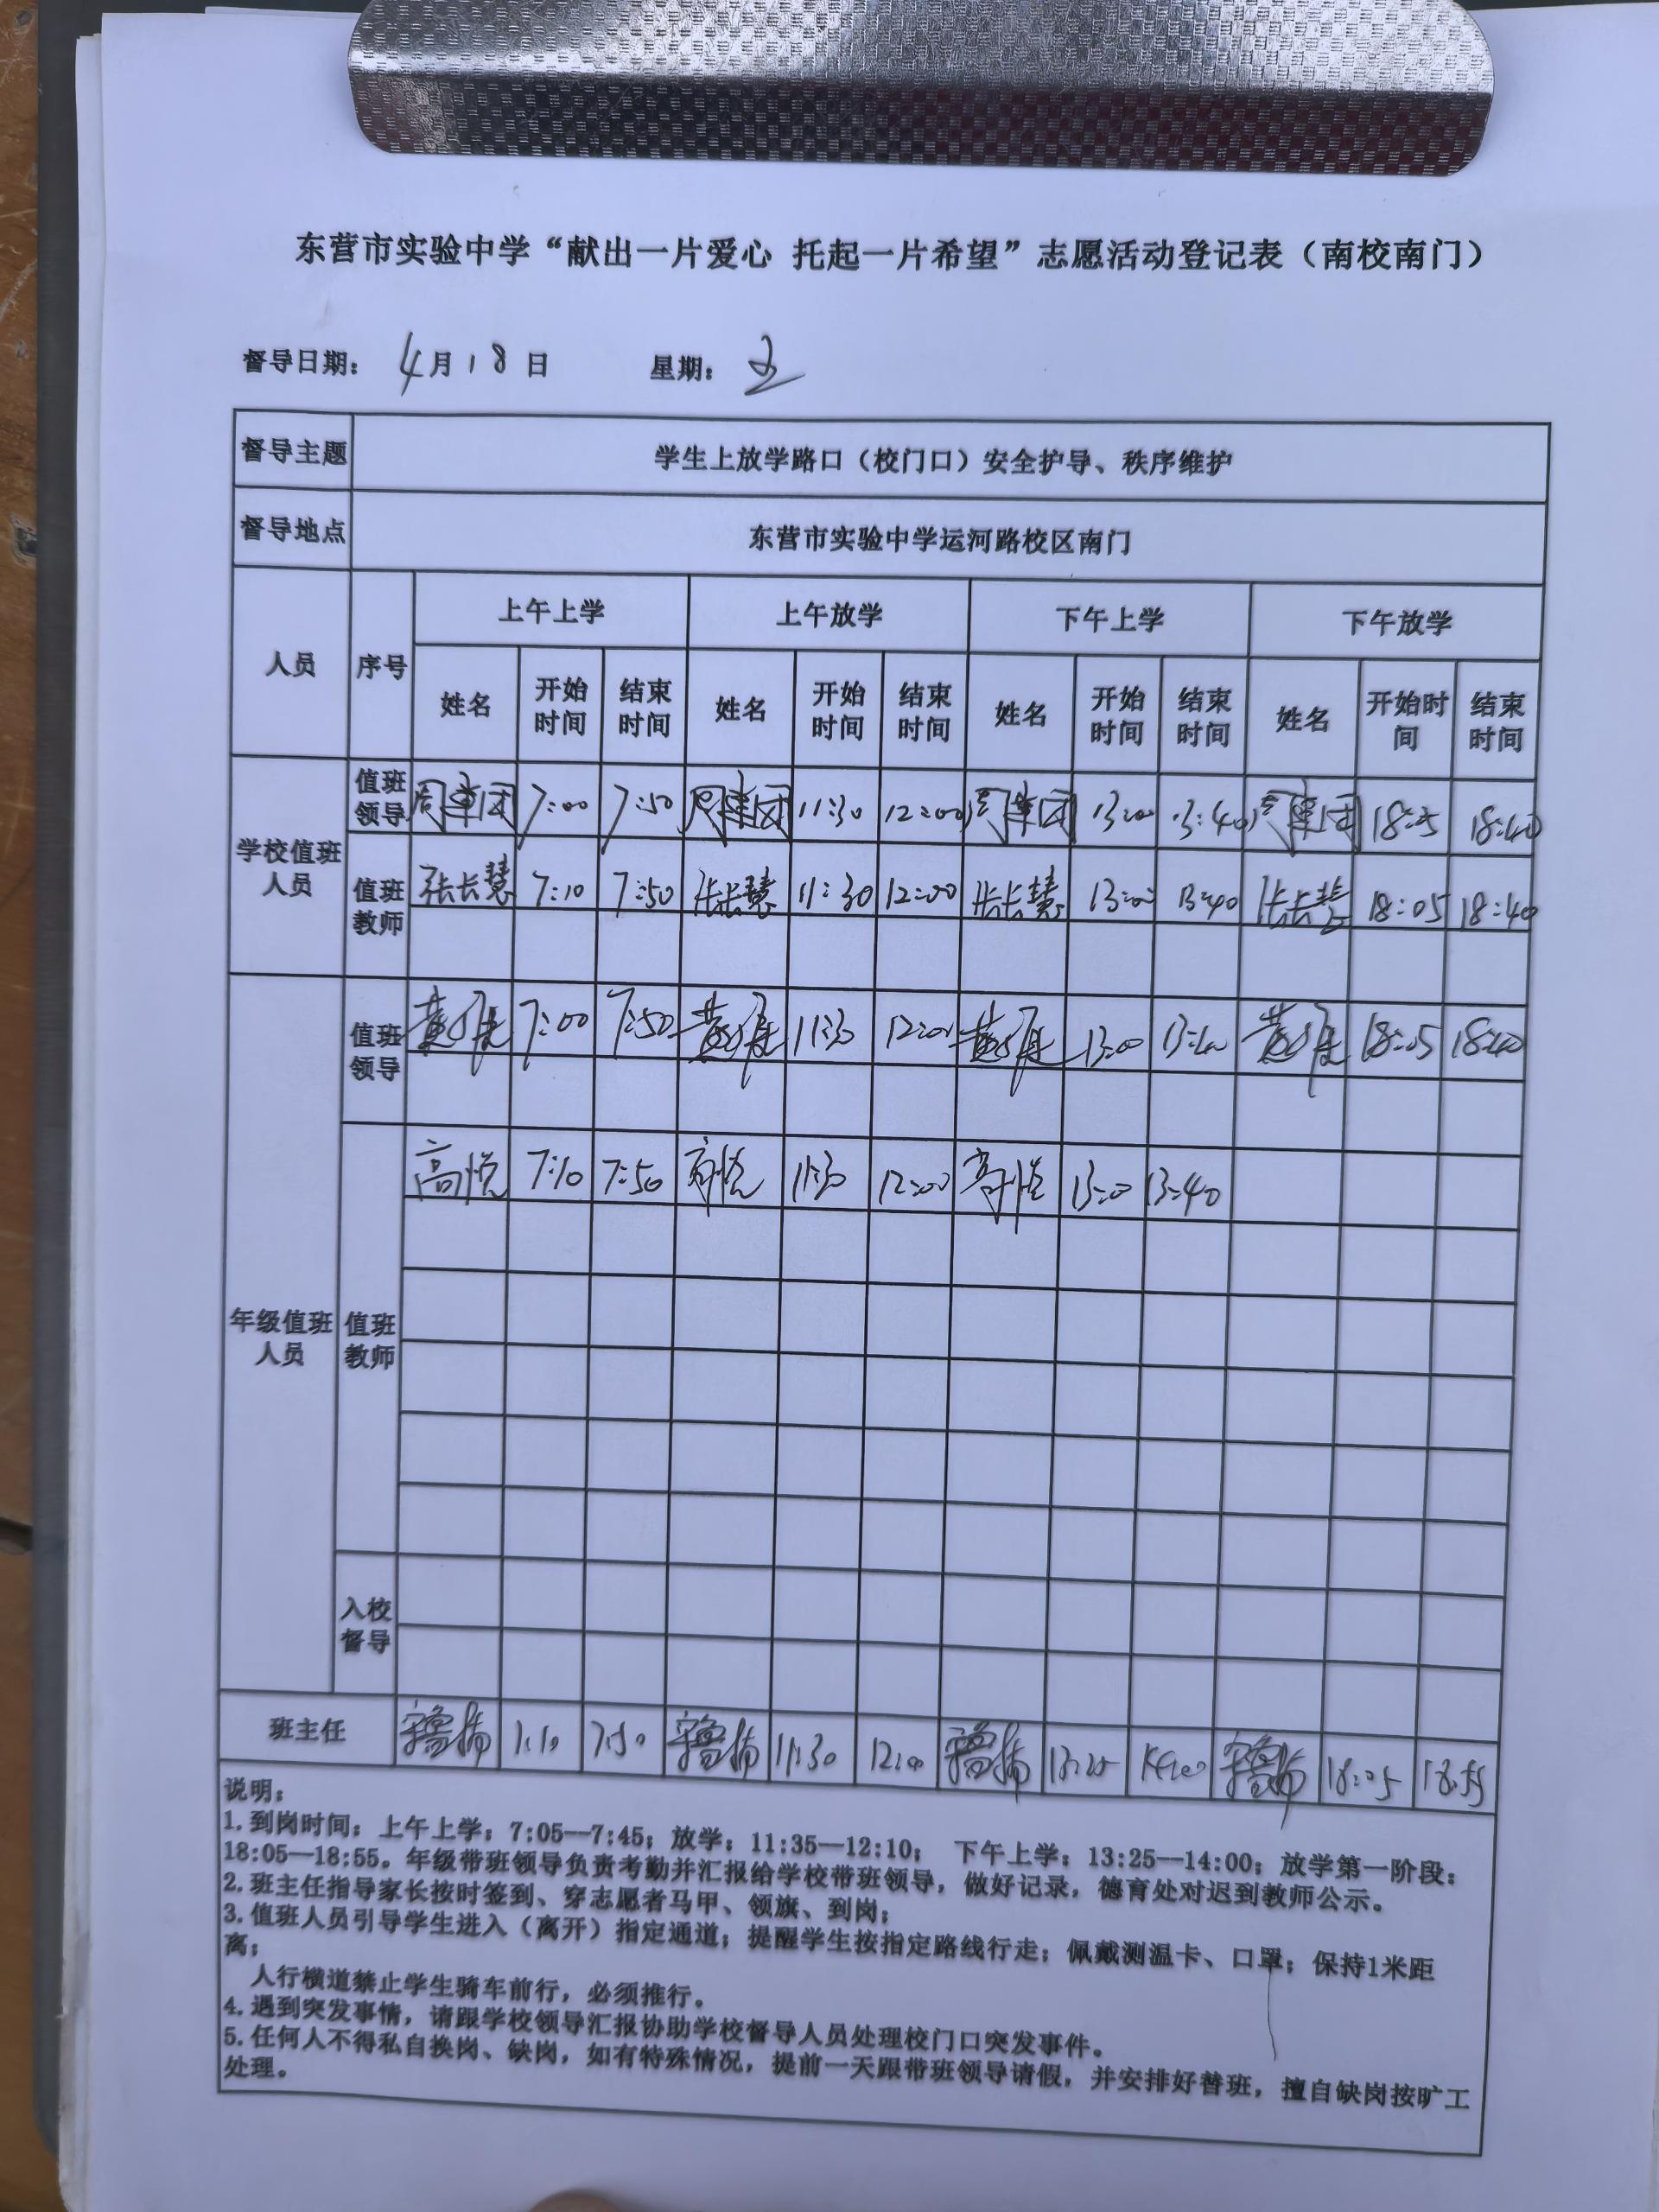 东营市实验中学“献出一片爱心 托起一片希望”志愿活动登记表（南校南门）
督导日期： 4月18日 星期： 五
督导主题 学生上放学路口（校门口）安全护导、秩序维护
督导地点 东营市实验中学运河路校区南门
人员 序号 上午上学 上午放学 下午上学 下午放学
姓名 开始时间 结束时间 姓名 开始时间 结束时间 姓名 开始时间 结束时间 姓名 开始时间 结束时间
学校值班人员
值班领导 7:00 7:50 11:30 12:00 13:00 13:40 18:05 18:40
值班教师 张长慧 7:10 7:50 张长慧 11:30 12:00 张长慧 13:00 13:40 张长慧 18:05 18:40
年级值班人员
值班领导 7:00 7:50 11:30 12:00 13:00 13:40 18:05 18:40
值班教师 高悦 7:10 7:50 高悦 11:30 12:00 高悦 13:00 13:40
入校督导
班主任 7:10 7:50 11:30 12:00 13:25 14:00 18:05 18:55
说明：
1.到岗时间：上午上学：7:05—7:45；放学：11:35—12:10； 下午上学：13:25—14:00；放学第一阶段：
18:05—18:55。年级带班领导负责考勤并汇报给学校带班领导，做好记录，德育处对迟到教师公示。
2.班主任指导家长按时签到、穿志愿者马甲、领旗、到岗；
3.值班人员引导学生进入（离开）指定通道；提醒学生按指定路线行走；佩戴测温卡、口罩；保持1米距
离；
人行横道禁止学生骑车前行，必须推行。
4.遇到突发事情，请跟学校领导汇报协助学校督导人员处理校门口突发事件。
5.任何人不得私自换岗、缺岗，如有特殊情况，提前一天跟带班领导请假，并安排好替班，擅自缺岗按旷工
处理。